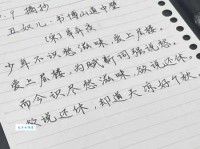 摘抄
丑奴儿·书博山道中壁
[宋]辛弃疾
少年不识愁滋味,爱上层楼。
爱上层楼,为赋新词强说愁。
而今识尽愁滋味,欲说还休。
欲说还休,却道天凉好个秋。